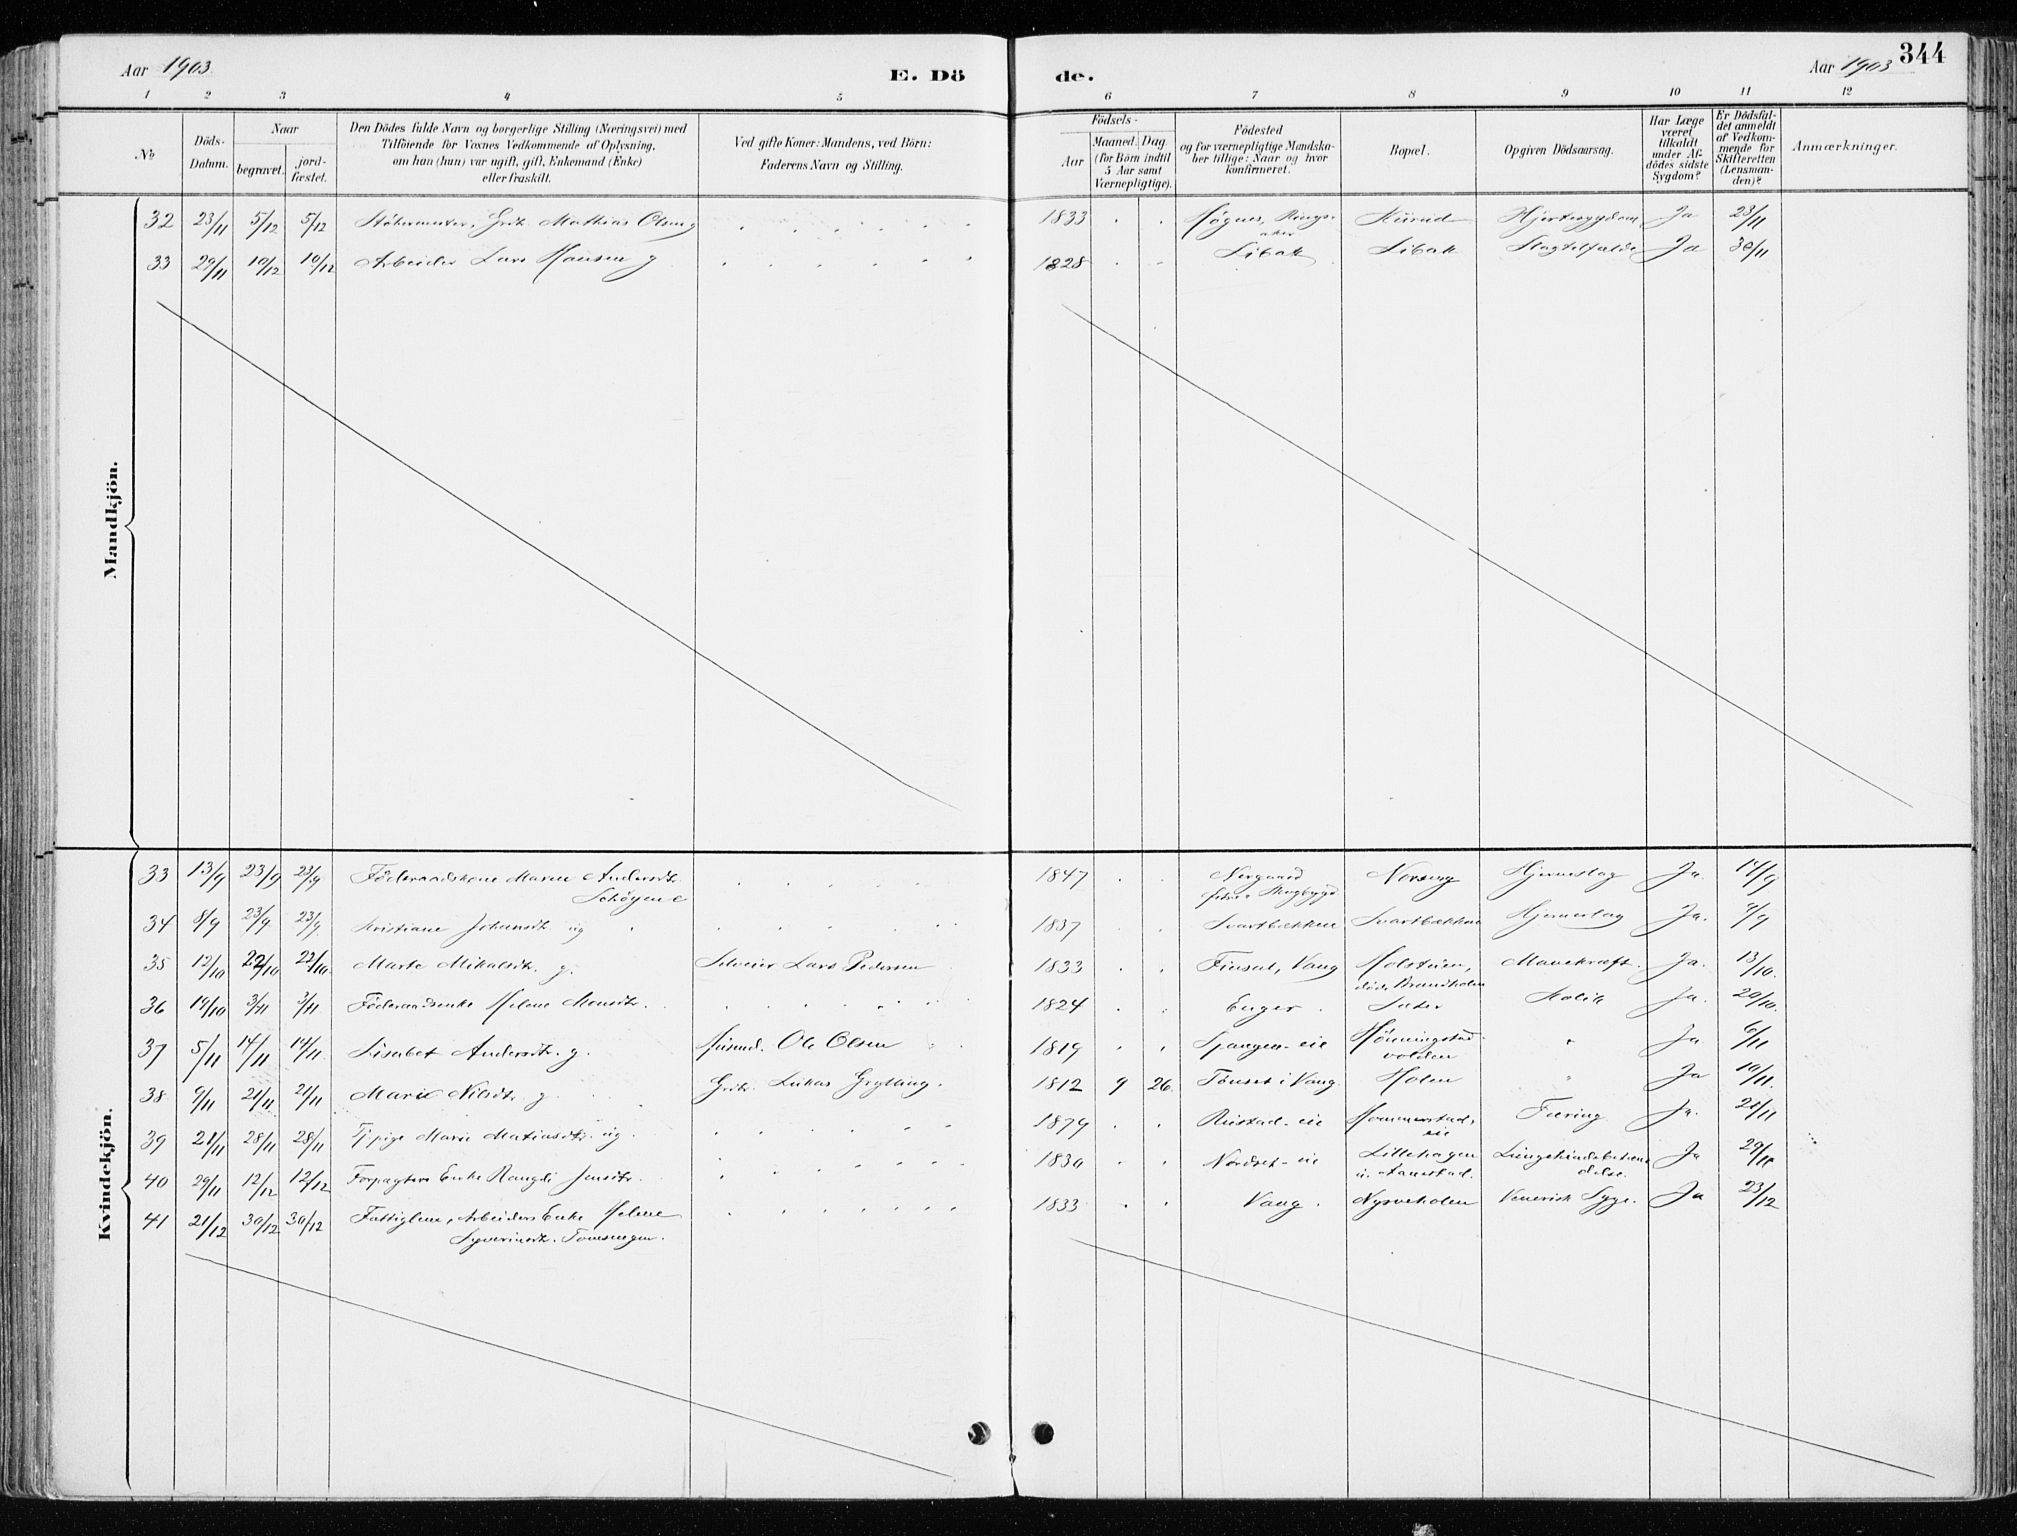 Aar 1903. E. Dö de. Aar 1903 344
1 2 3 4 5 6 7 8 9 10 11 12
№
Döds-
Datum.
Naar
begravet.
jord-
fæstet.
Den Dödes fulde Navn og borgerlige Stilling (Næringsvei) med
Tilföiende for Voxnes Vedkommende af Oplysning,
om han (hun) var ugift, gift, Enkemand (Enke)
eller fraskilt.
Ved gifte Koner: Mandens, ved Börn:
Faderens Navn og Stilling.
Födsels-
Aar
Maaned. Dag
(for Börn indtil
5 Aar samt
Værnepligtige).
Födested
og for værnepligtige Mandska-
ber tillige: Naar og hvor
konfirmeret.
Bopæl.
Opgiven Dödsaarsag.
Har Læge
været
tilkaldt
under Af-
dödes sidste
Sygdom?
Er Dödsfal-
det anmeldt
af Vedkom-
mende for
Skifteretten
(Lensman-
den)?
Anmærkninger.
Mandkjön.
32 23/11 5/12 5/12 Mathias Olsen g 1833 Rings- Hjertesygdom Ja 23/11
aker
33 29/11 10/12 10/12 Arbeider Lars Hansen g 1828 Libak Libak Slagtilfælde Ja 30/11
Kvindekjön.
33 13/9 23/9 23/9 Föderaadskone Maren Andersdtr. 1847 Nergaard Hjerneslag Ja. 14/9
Schöyen e
34 8/9 23/9 23/9 Kristiane Johansdtr. ug 1837 Svartbækken Svartbækken Hjerneslag Ja. 9/9
35 12/10 22/10 22/10 Marte Mikalsdtr. g. Selveier Lars Pedersen 1833 Finsal, Vang Holstuen, Mavekræft. Ja. 13/10.
36 19/10 3/11 3/11 Föderaadsenke Helene Monsdtr. 1824 Enger. Sater Kolik Ja. 20/10.
37 5/11 14/11 14/11. Lisabet Andersdtr. g. Husmd. Ole Olsen 1819 Spangen-eie Hönningstad- " Ja 6/11
volden
38 9/11 21/11 21/11 Marie Nilsdtr. g. Grdb. Lukas Grytting. 1812 9 26. Tönset i Vang. Holen " Ja 10/11.
39 21/11 28/11 28/11 Tj.pige Marie Matiasdtr. ug. 1879 Rustad-eie Hommerstad, Tæring Ja. 21/11
eie
40 29/11 12/12 12/12 Forpagters Enke Rangdi Jensdtr. 1830 Nordset-eie Lillehagen Lungehindebetæn- Ja 29/11
u. Aamstad. delse.
41 21/12 30/12 30/12 Fattiglem, Arbeiders Enke Helene 1833 Vang. Nysveholen Venerisk Syge. Ja 23/12
Syverinsdtr. Tommengen.